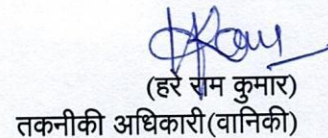 (हरे राम कुमार)
तकनीकी अधिकारी(वानिकी)